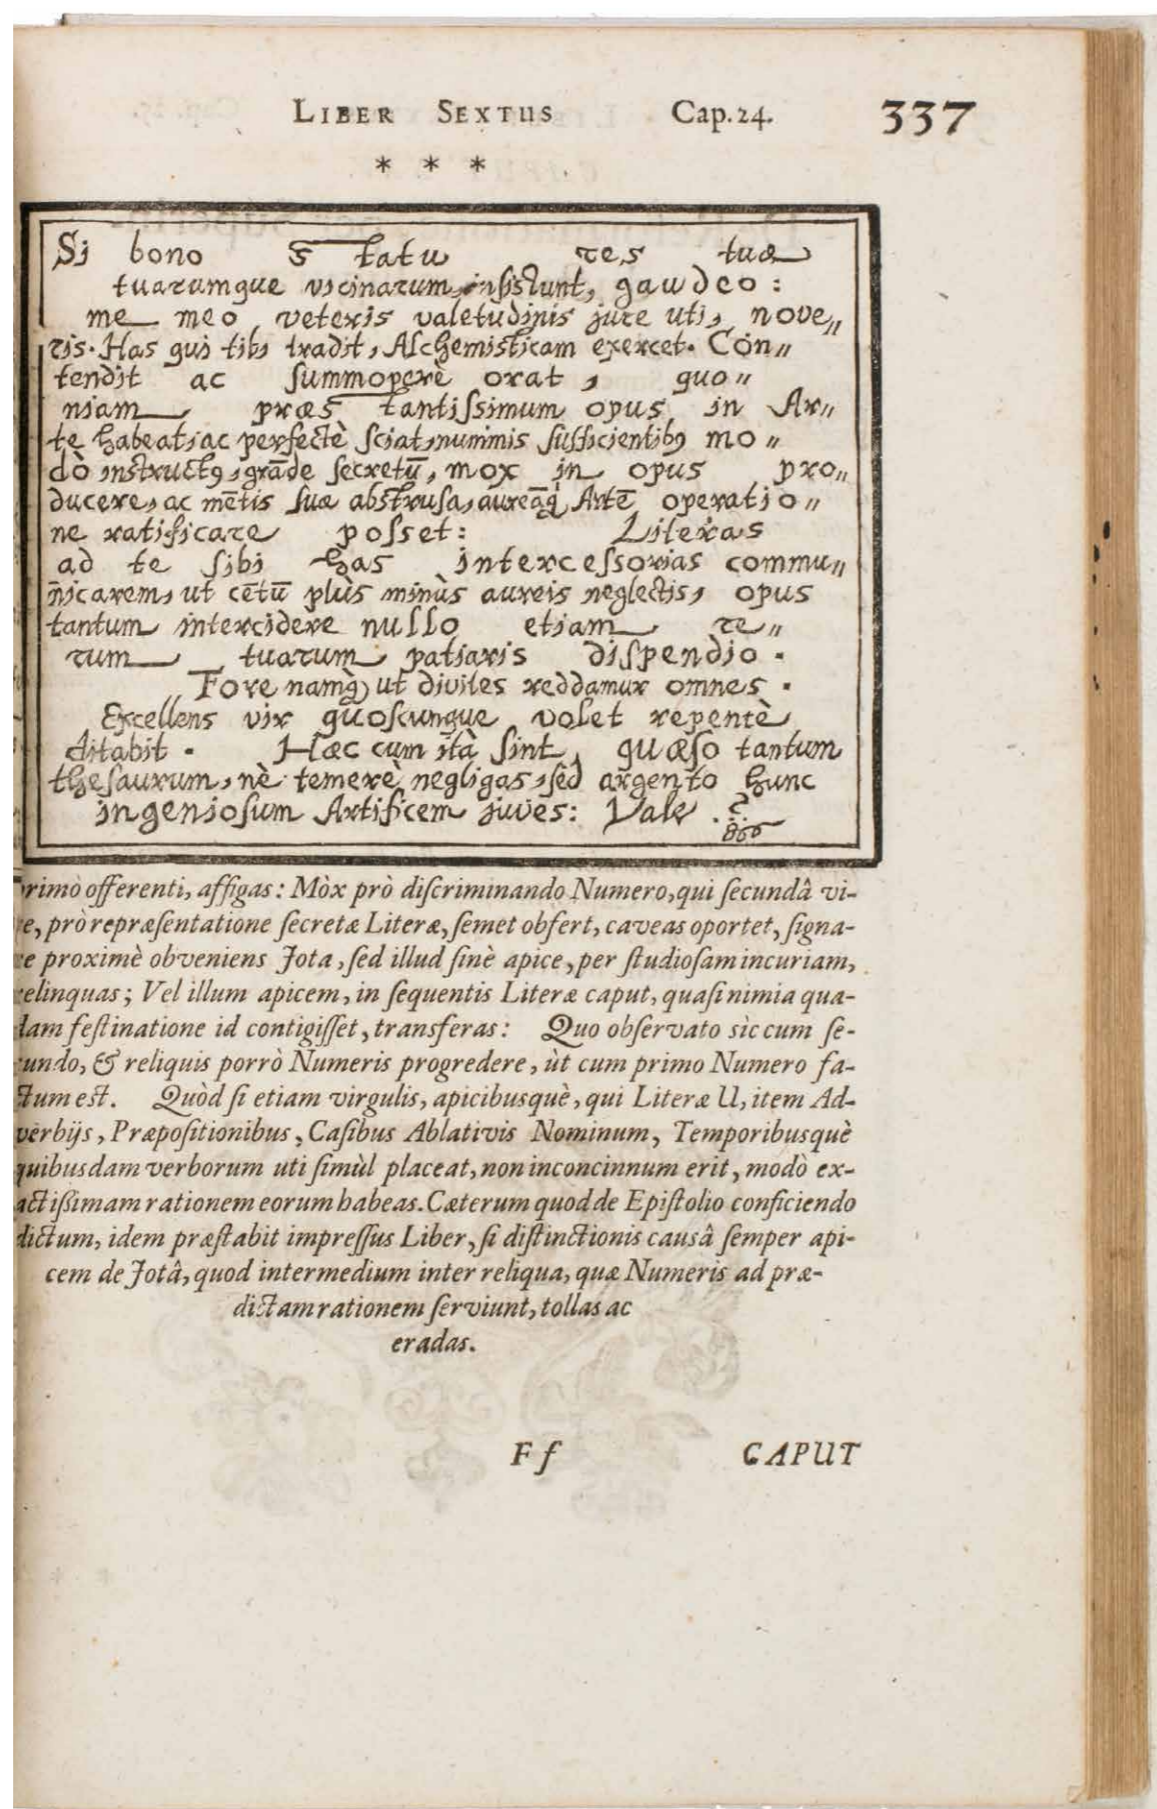 LIBER SEXTUS Cap. 24. 337
* * *
Si bono statu res tuæ
tuarumque vicinarum, insistunt, gaudeo:
me meo veteris valetudinis jure uti, nove„
ris. Has qui tibi tradit, Alchemisticam exercet. Con„
tendit ac summoperè orat, quo„
niam præstantissimum opus in Ar„
te habeat, ac perfectè sciat, nummis sufficientibꝰ mo„
dò instructꝰ, grāde secretū, mox in opus pro„
ducere, ac mētis suæ abstrusa, aureāq́ Artē operatio„
ne ratificare posset: Literas
ad te sibi has intercessorias commu„
nicarem, ut cētū plùs minùs aureis neglectis, opus
tantum intercidere nullo etiam re„
rum tuarum patiaris dispendio.
Fore namq̀, ut divites reddamur omnes.
Excellens vir quoscunque volet repentè
ditabit. Hæc cum ità sint, quæso tantum
thesaurum, nè temerè negligas, sed argento hunc
ingeniosum Artificem juves: Vale.
rimò offerenti, affigas: Mòx prò discriminando Numero, qui secundâ vi-
re, prò repræsentatione secretæ Literæ, semet obfert, caveas oportet, signa-
re proximè obveniens Jota, sed illud sinè apice, per studiosam incuriam,
relinquas; Vel illum apicem, in sequentis Literæ caput, quasi nimia qua-
dam festinatione id contigisset, transferas: Quo observato sìc cum se-
cundo, & reliquis porrò Numeris progredere, ùt cum primo Numero fa-
ctum est. Quòd si etiam virgulis, apicibusquè, qui Literæ U, item Ad-
verbijs, Præpositionibus, Casibus Ablativis Nominum, Temporibusquè
quibusdam verborum uti simùl placeat, non inconcinnum erit, modò ex-
actissimam rationem eorum habeas. Cæterum quod de Epistolio conficiendo
dictum, idem præstabit impressus Liber, si distinctionis causâ semper api-
cem de Jotâ, quod intermedium inter reliqua, quæ Numeris ad præ-
dictam rationem serviunt, tollas ac
eradas.
Ff CAPUT